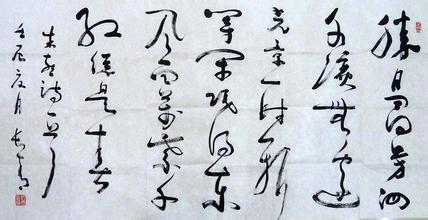 勝日尋芳泗
水濱無邊
光景一時新
等閒識得東
風面萬紫千
紅總是春
朱熹詩
壬辰夏月